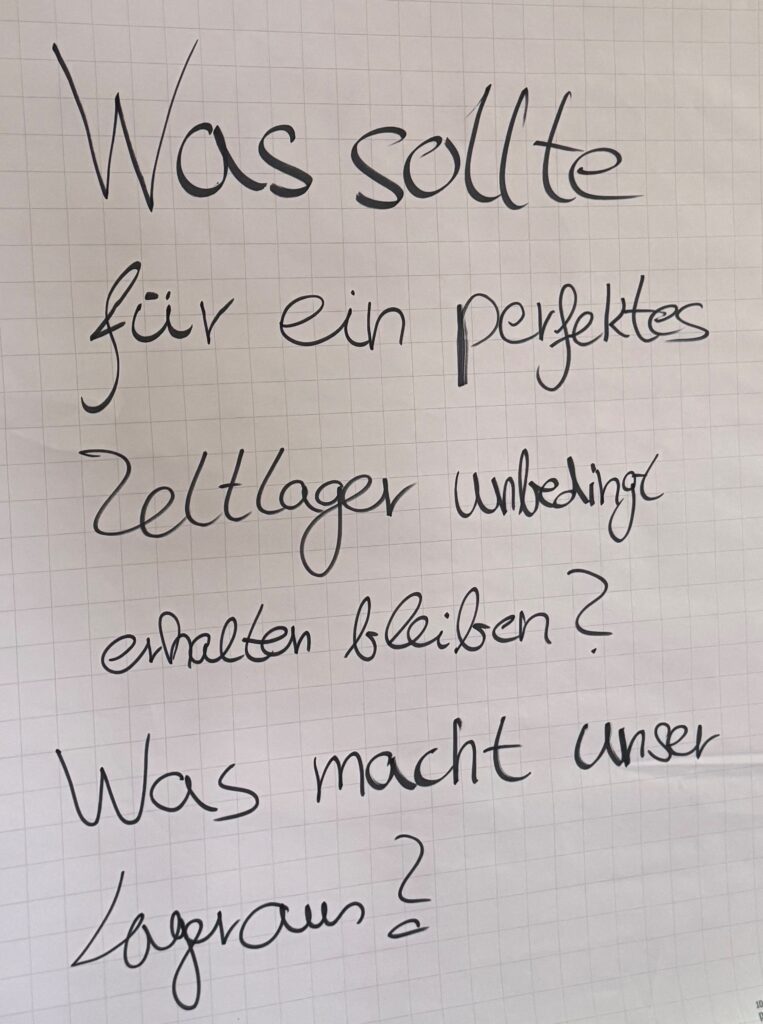 Was sollte
für ein perfektes
Zeltlager unbedingt
erhalten bleiben?
Was macht unser
Lager aus?